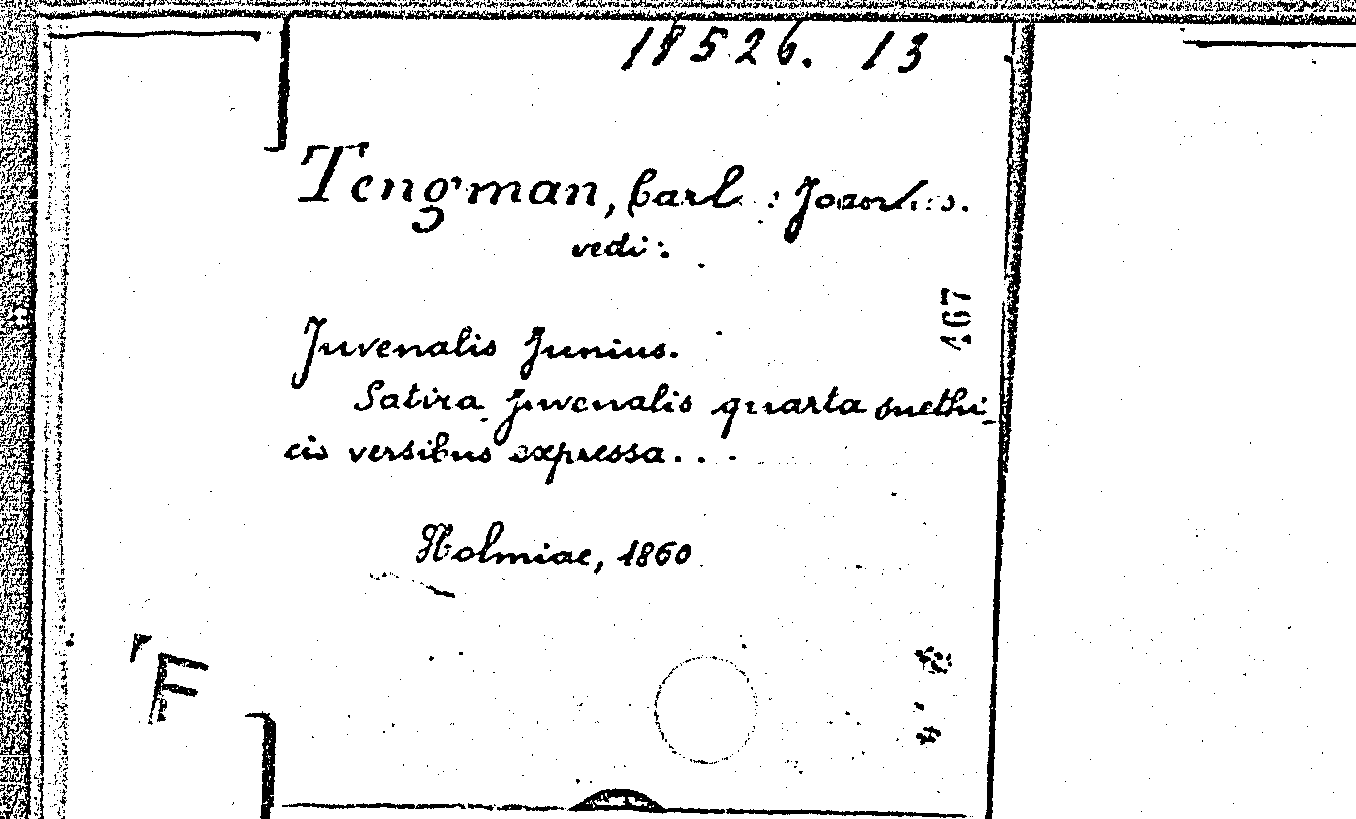 18526. 13
Tengman, Carl
vedi:
467
Juvenalis Junius.
Satira Juvenalis quarta suethi-
cis versibus expressa...
Holmiae, 1860
F